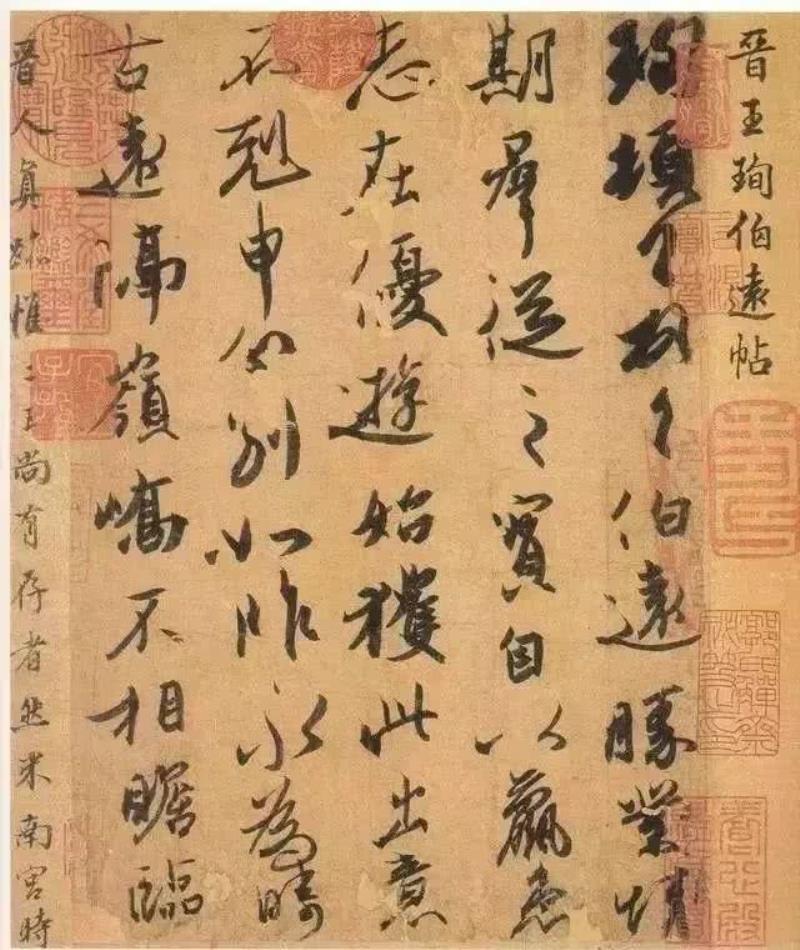 晉王珣伯遠帖
珣頓首頓首伯遠勝業情
期羣從之寶自以羸患
志在優游始獲此出意
不剋申分別如昨永為疇
古遠隔嶺嶠不相瞻臨
晉人真跡惟二王尚有存者然米南宮時